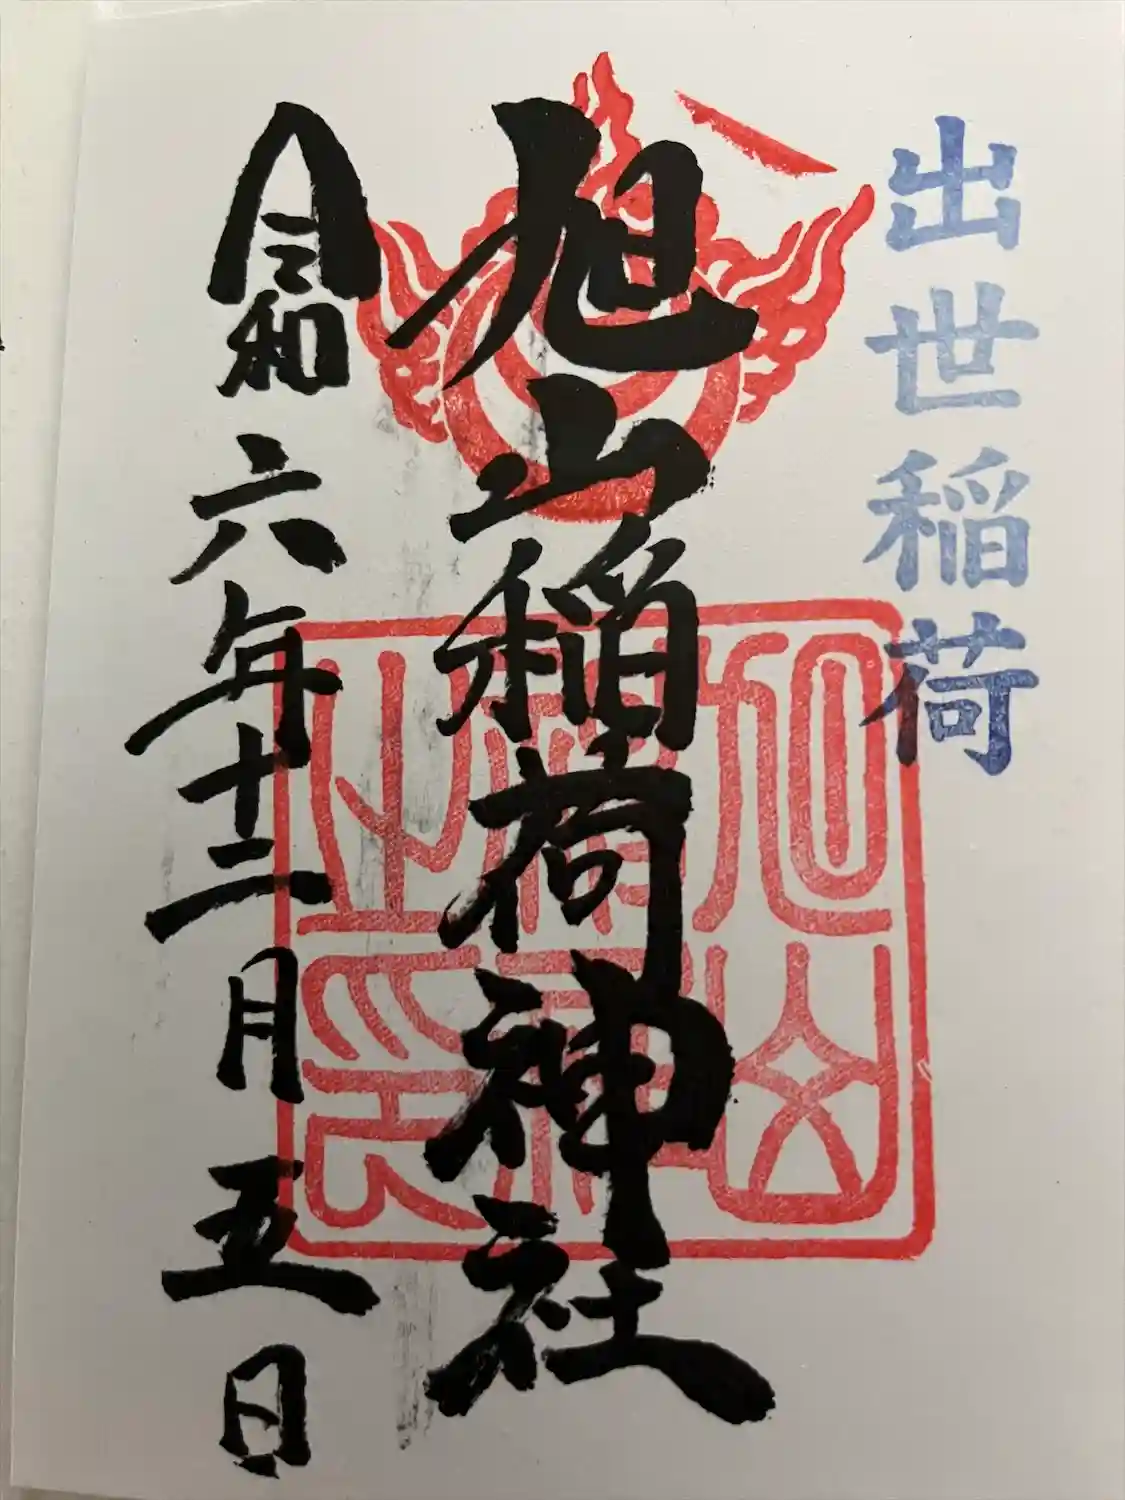 出世稲荷
旭山稲荷神社
令和六年十二月五日
旭山稲荷之印